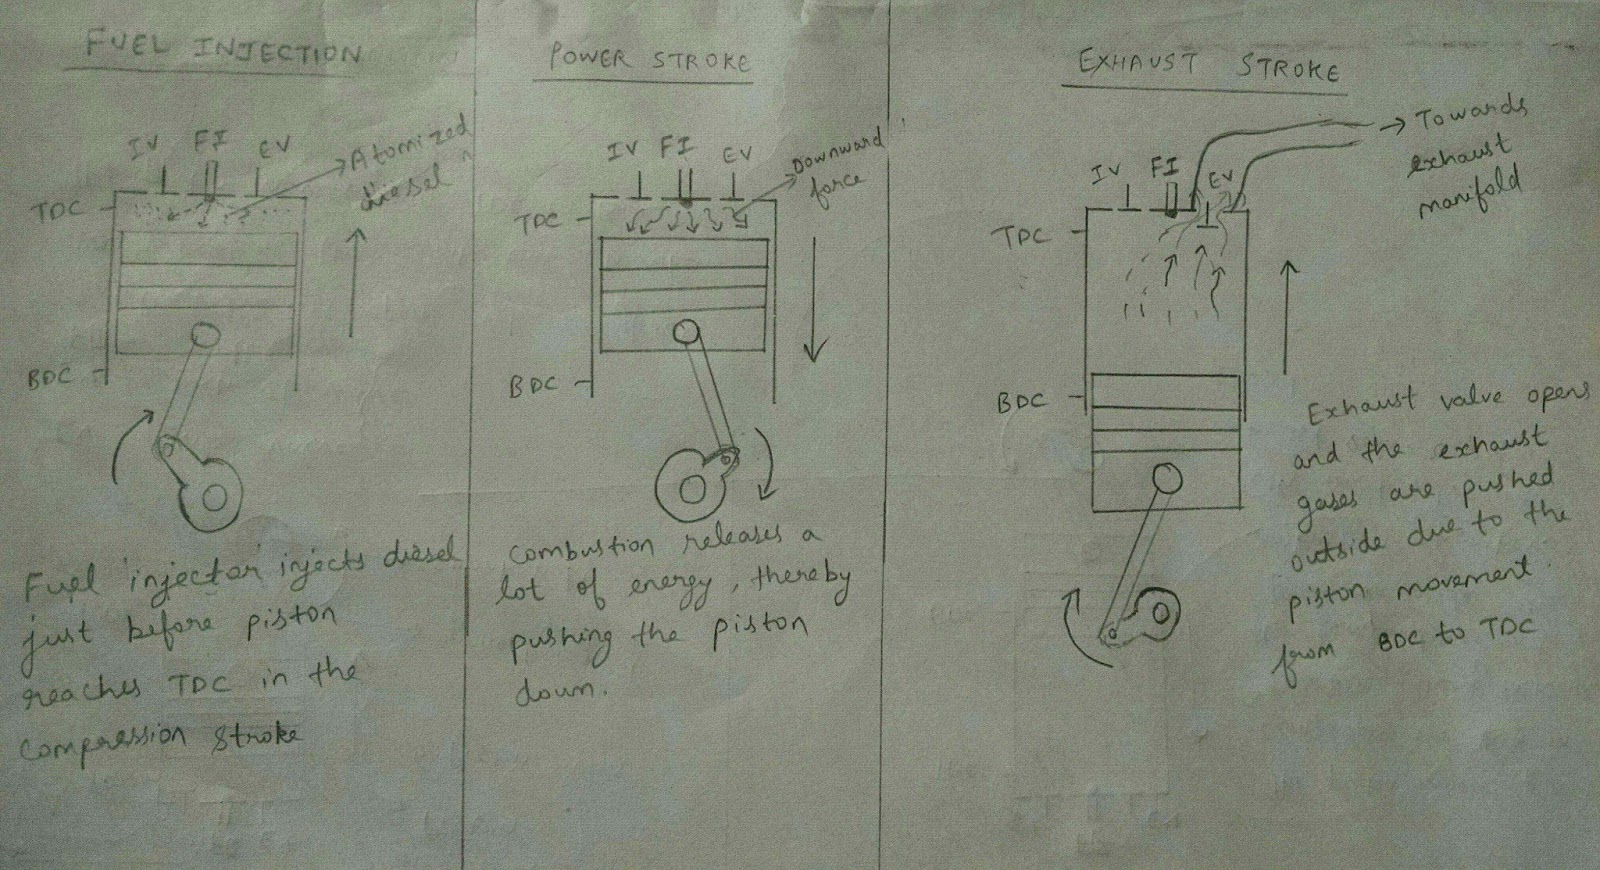 FUEL INJECTION
IV FI EV
Atomized
diesel
TDC
BDC
Fuel injector injects diesel
just before piston
reaches TDC in the
compression stroke
POWER STROKE
IV FI EV
Downward
force
TDC
BDC
Combustion releases a
lot of energy, thereby
pushing the piston
down.
EXHAUST STROKE
Towards
exhaust
manifold
IV FI EV
TDC
BDC
Exhaust valve opens
and the exhaust
gases are pushed
outside due to the
piston movement.
from BDC to TDC